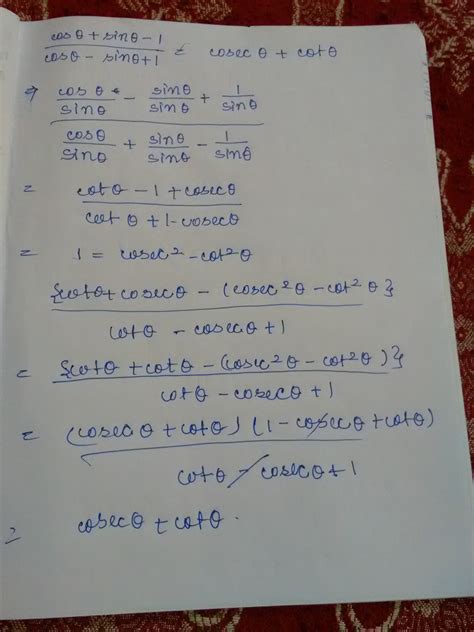 cosθ + sinθ - 1 / cosθ - sinθ + 1 = cosecθ + cotθ
⇒ cosθ/sinθ - sinθ/sinθ + 1/sinθ / cosθ/sinθ + sinθ/sinθ - 1/sinθ
= cotθ - 1 + cosecθ / cotθ + 1 - cosecθ
= 1 = cosec²-cot²θ
{cotθ + cosecθ - (cosec²θ - cot²θ} / cotθ - cosecθ + 1
= {cotθ + cotθ - (cosec²θ - cot²θ)} / cotθ - cosecθ + 1
= (cosecθ + cotθ) (1 - cosecθ + cotθ) / cotθ - cosecθ + 1
= cosecθ + cotθ.